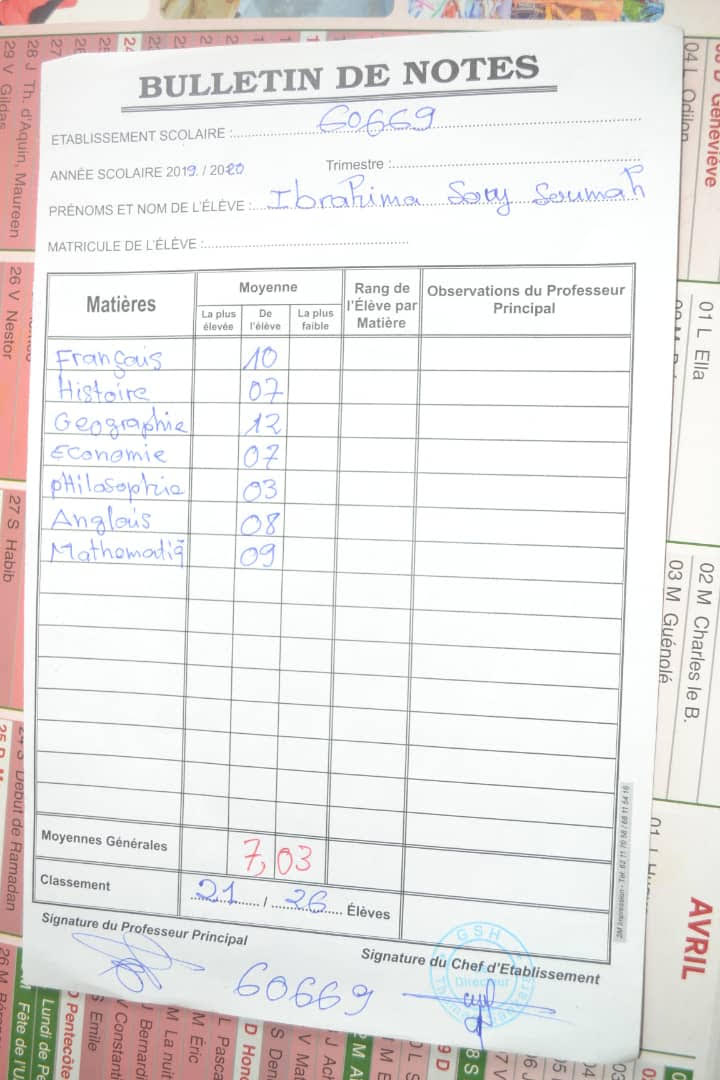 BULLETIN DE NOTES
ETABLISSEMENT SCOLAIRE : 60669
ANNÉE SCOLAIRE 2019 / 2020 Trimestre :
PRÉNOMS ET NOM DE L'ÉLÈVE : Ibrahima Sory Soumah
MATRICULE DE L'ÉLÈVE :
Matières Moyenne Rang de l'Élève par Matière Observations du Professeur Principal
La plus élevée De l'élève La plus faible
Français 10
Histoire 07
Geographie 12
Economie 07
pHilosophie 03
Anglais 08
Mathematiq 09
Moyennes Générales 7,03
Classement 21 / 26 Élèves
Signature du Professeur Principal Signature du Chef d'Etablissement
60669
GSH
Directeur
04 L Odilon
Geneviève
01 L Ella
02 M Charles le B.
03 M Guénolé
AVRIL
28 J Th. d'Aquin, Maureen
29 V Gildas
26 V Nestor
27 S Habib
Début de Ramadan
Lundi de Pe
Fête de l'U
Pentecôte
S Emile
V Constanti
J Bernardi
M La nuit
M Éric